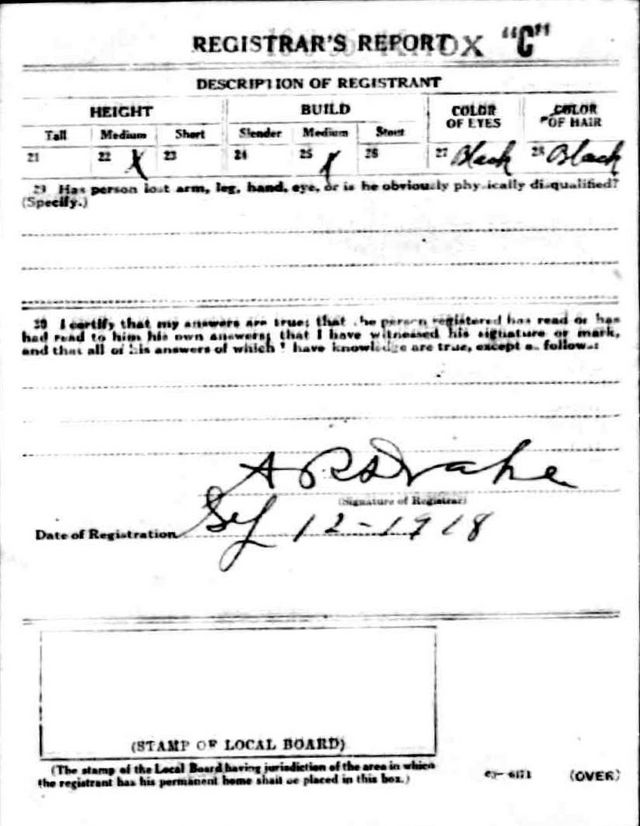 REGISTRAR'S REPORT "C"
DESCRIPTION OF REGISTRANT
HEIGHT BUILD COLOR OF EYES COLOR OF HAIR
Tall Medium Short Slender Medium Stout
21 22 X 23 24 25 X 26 27 Black 28 Black
29 Has person lost arm, leg, hand, eye, or is he obviously physically disqualified?
(Specify.)
30 I certify that my answers are true; that the person registered has read or has
had read to him his own answers; that I have witnessed his signature or mark,
and that all of his answers of which I have knowledge are true, except as follows:
A R Drake
(Signature of Registrar)
Date of Registration Sep 12-1918
(STAMP OF LOCAL BOARD)
(The stamp of the Local Board having jurisdiction of the area in which
the registrant has his permanent home shall be placed in this box.)
03-6171 (OVER)